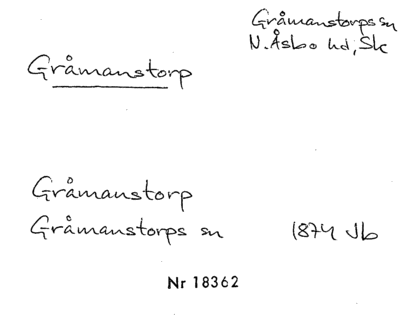 Gråmanstorps sn
N. Åsbo hd, Sk
Gråmanstorp
Gråmanstorp
Gråmanstorps sn 1874 Jb
Nr 18362